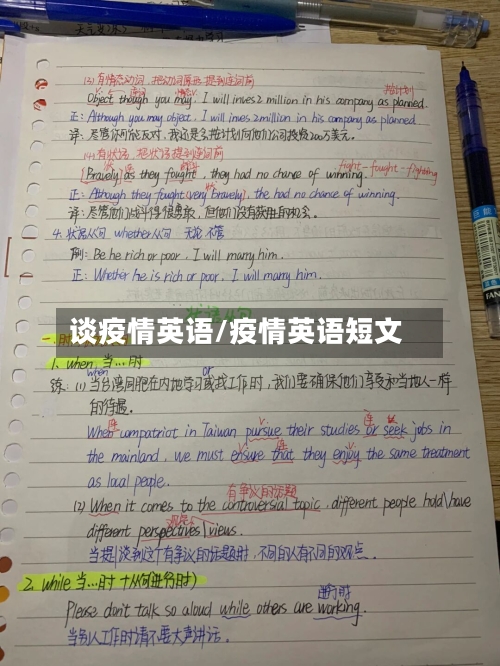 (3) 有情态动词, 把动词原形提到连词前
按计划
Object though you may, I will inves 2 million in his company as planned.
正: Although you may object, I will inves 2 million in his company as planned.
译: 尽管你可能反对, 我还是会按计划向他们公司投资200万美元。
(4) 有状语, 把状语提到连词前
fight-fought-fighting
(Bravely) as they fought, they had no chance of winning.
正: Although they fought (very bravely), the had no chance of winning.
译: 尽管他们战斗得很勇敢, 但他们没有获胜的机会。
4. 状语从句 whether从句 无论 不管
例: Be he rich or poor, I will marry him.
正: Whether he is rich or poor, I will marry him.
谈疫情英语/疫情英语短文
1. when, 当…时
when or
练: (1) 当台湾同胞在内地学习或找工作时, 我们要确保他们享受和当地人一样
的待遇。
When compatriot in Taiwan pursue their studies or seek jobs in
the mainland, we must ensure that they enjoy the same treatment
as local people.
有争议的话题
(2) When it comes to the controversial topic, different people hold\have
different perspectives\views.
当提\谈到这个有争议的话题时, 不同的人有不同的观点。
2. while 当…时 + 从句(进行时)
进行时
Please don't talk so aloud while others are working.
当别人工作时请不要大声讲话。